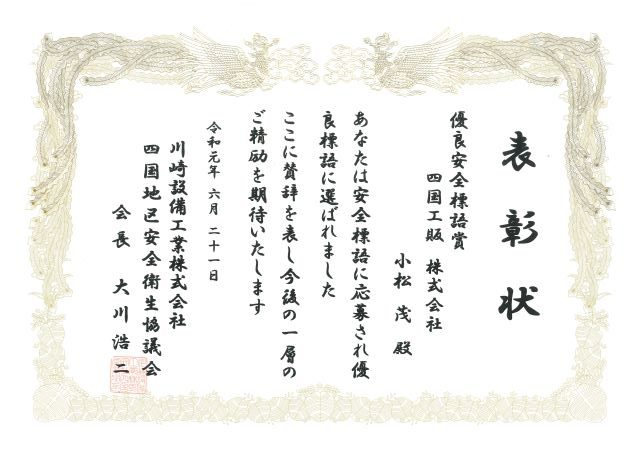 表彰状
優良安全標語賞
四国工販 株式会社
小松 茂 殿
あなたは安全標語に応募され優
良標語に選ばれました
ここに賛辞を表し今後の一層の
ご精励を期待いたします
令和元年 六月 二十一日
川崎設備工業株式会社
四国地区安全衛生協議会
会長 大川浩二